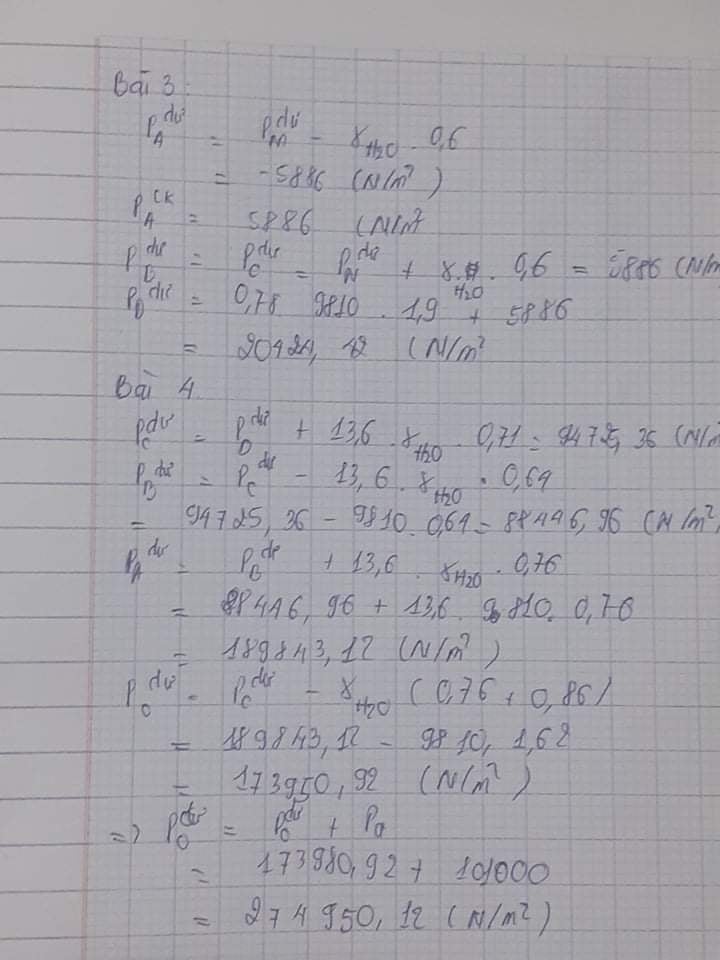 Bài 3:
P_A^dư = P_M^dư - γ_H2O . 0,6
= -5886 (N/m²)
P_A^CK = 5886 (N/m²
P_B^dư = P_C^dư = P_N^dư + γ_H2O . 0,6 = 5886 (N/m
P_D^dư = 0,78 9810 . 1,9 + 5886
= 20424, 12 (N/m²
Bài 4
P_C^dư = P_D^dư + 13,6 . γ_H2O . 0,71 = 94725, 36 (N/m
P_B^dư = P_C^dư - 13,6 . γ_H2O . 0,64
= 94725, 36 - 9810 . 0,64 = 88446, 96 (N/m²)
P_A^dư = P_B^dư + 13,6 . γ_H2O . 0,76
= 88446, 96 + 13,6 . 9810 . 0,76
= 189843,12 (N/m²)
P_O^dư = P_C^dư - γ_H2O (0,76 + 0,86)
= 189843,12 - 9810, 1,62
= 173950,92 (N/m²)
=> P_O^dư = P_O^dư + Pa
= 173980,92 + 101000
= 274950,12 (N/m²)